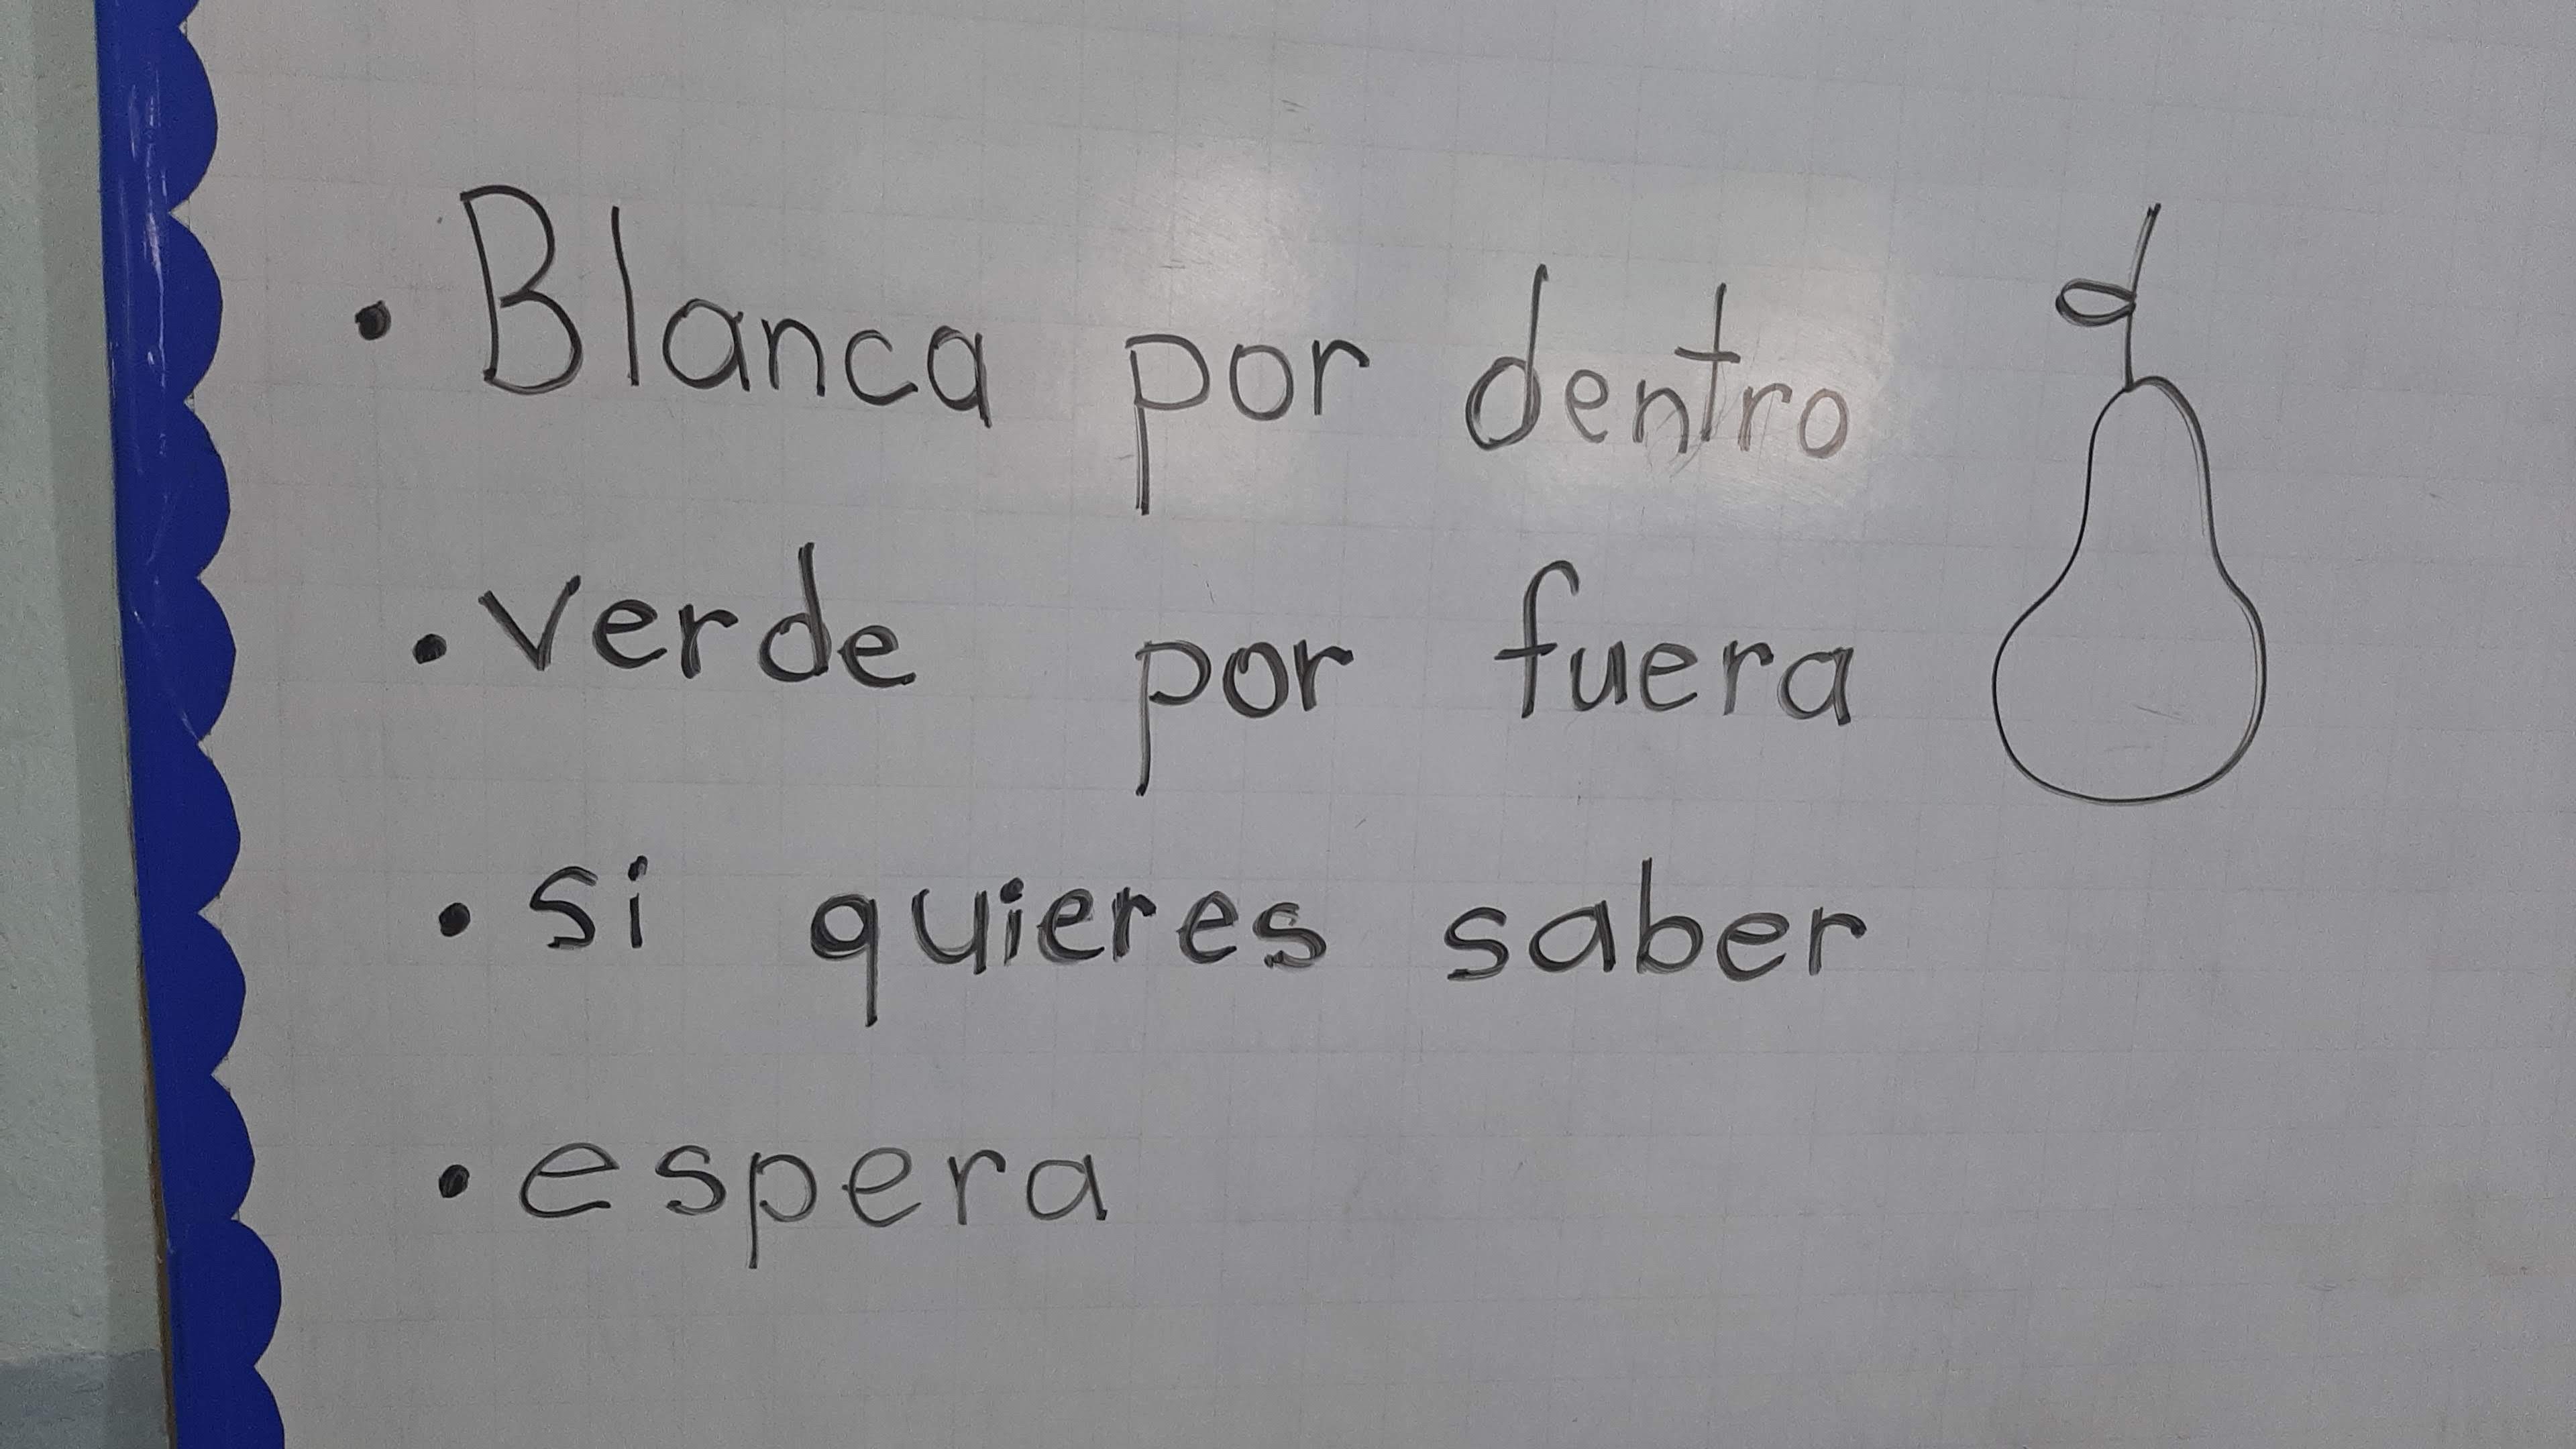 • Blanca por dentro
• verde por fuera
• si quieres saber
• espera